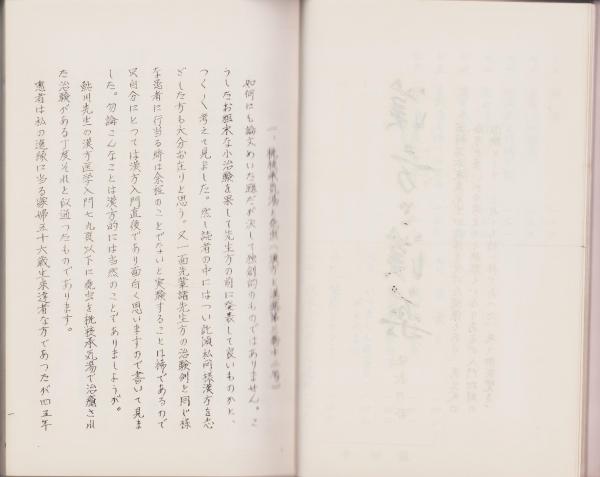 一、桃核承気湯と
如何にも論文めいた題だが決して独創的のものではありません。こ
うしたお粗末な小治験を果して先生方の前に発表して良いものかと、
つく〴〵考えて見ました。然し読者の中にはつい此頃私同様漢方を志
ざした方も大分お在りと思う。又一面先輩諸先生方の治験例と同じ様
な患者に行当る時は余程のことでないと実験することは稀であるので
又自分にとっては漢方入門直後であり面白く思いますので書いて見ま
した。勿論こんなことは漢方的には当然のことでありましょうが。
鮎川先生の漢方医学入門七九頁以下に虎虫を桃核承気湯で治癒され
た治験がある丁度それと似通ったものであります。
患者は私の遠縁に当る家婦五十六歳生来達者な方であつたが四五年
一